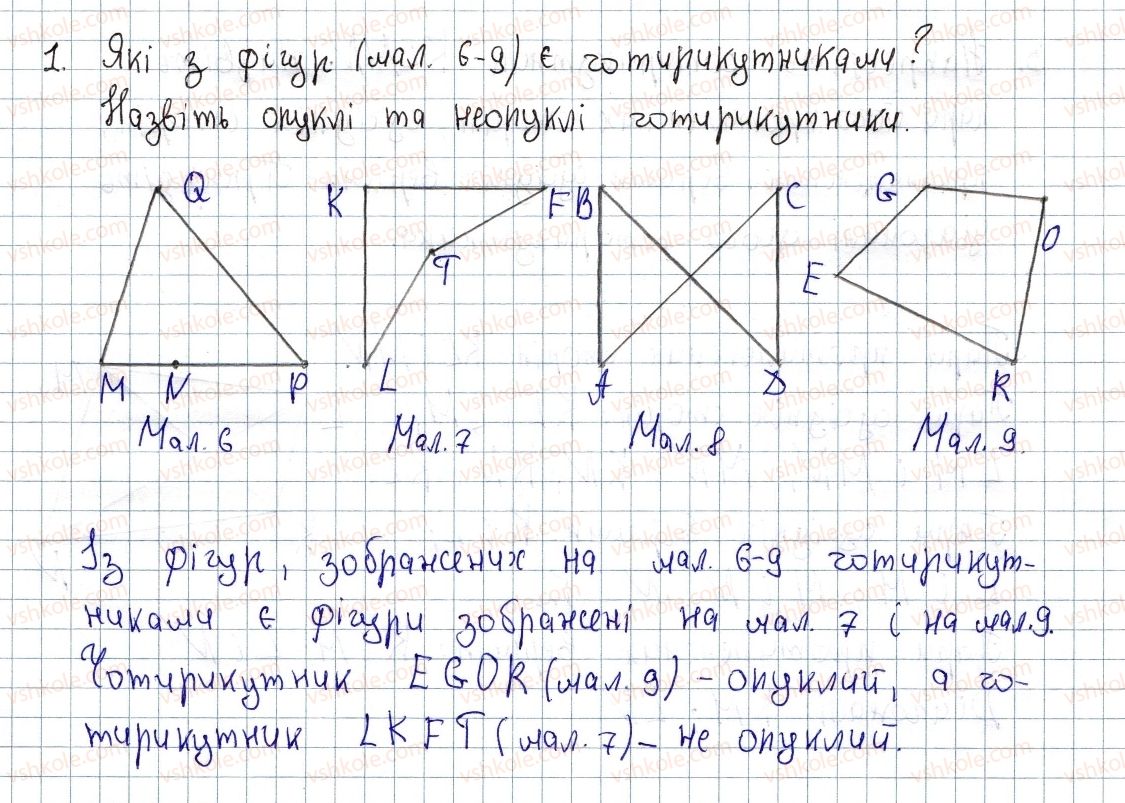 1. Які з фігур (мал. 6-9) є чотирикутниками?
Назвіть опуклі та неопуклі чотирикутники.
Q K F B C G O
T E
M N P L A D R
Мал. 6 Мал. 7 Мал. 8 Мал. 9.
Із фігур, зображених на мал. 6-9 чотирикут-
никами є фігури зображені на мал. 7 і на мал. 9.
Чотирикутник EGOR (мал. 9) - опуклий, а чо-
тирикутник LKFT (мал. 7) - не опуклий.